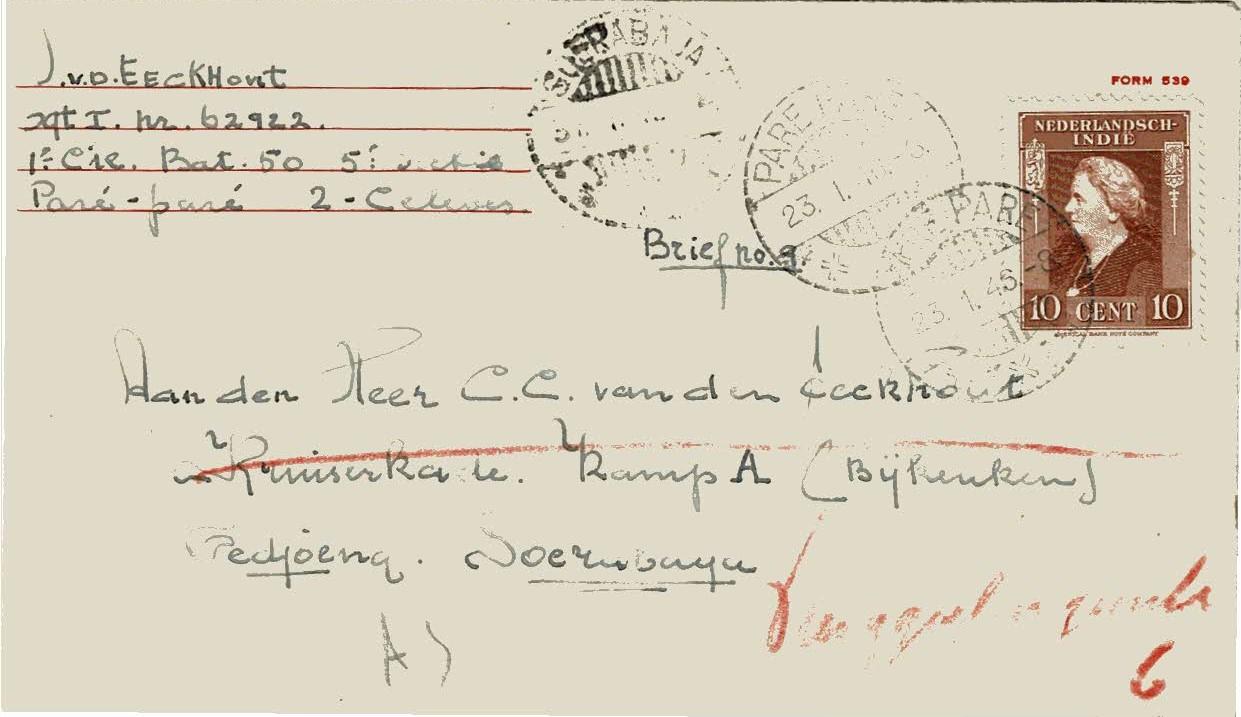 J.v.D. EECKHOUT
sgt I. nr. 62922.
1e Cie. Bat. 50 5e
Paré-paré 2 - Celebes
SOERABAJA
PARE PARE
23. 1.
PARE
23. 1. 46.-8
FORM 539
NEDERLANDSCH-
INDIË
10 CENT 10
AMERICAN BANK NOTE COMPANY
Brief no. 9.
Aan den Heer C.C. van den Eeckhout
Kruiserkade. Kamp A (Bijkeuken)
Pedjoeng. Soerabaya
A)
6